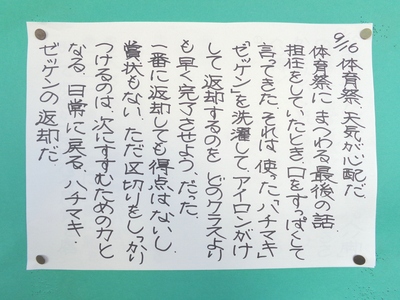 9/16 体育祭、天気が心配だ。
体育祭にまつわる最後の話。
担任をしていたとき、口をすっぱくして
言ってきた。それは、使った「ハチマキ」
「ゼッケン」を洗濯して、アイロンがけ
して返却するのを どのクラスより
も早く完了させよう、だった。
一番に返却しても得点はないし、
賞状もない。ただ区切りをしっかり
つけるのは、次にすすむための力と
なる。日常に戻る、ハチマキ・
ゼッケンの返却だ。